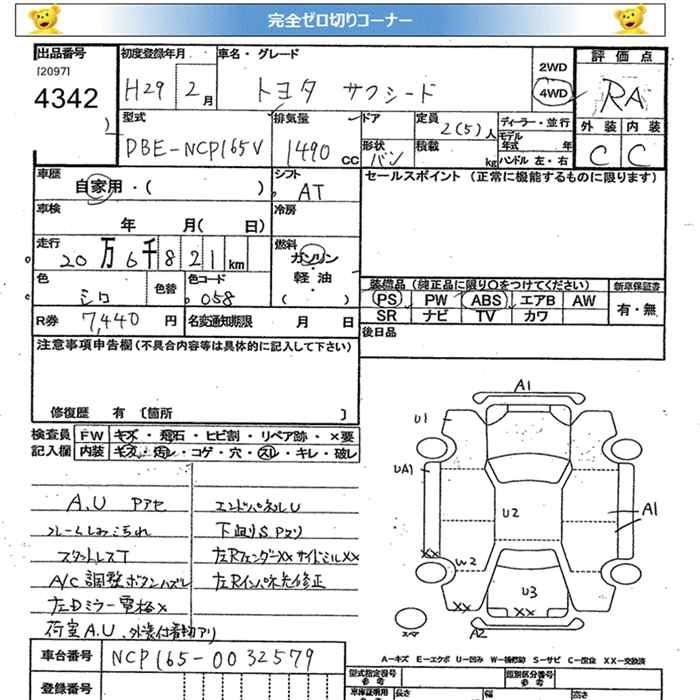 完全ゼロ切りコーナー
出品番号
[2097]
4342
初度登録年月
H29 2月
車名・グレード
トヨタ サクシード
2WD
4WD
評価点
RA
外装 内装
C C
型式
DBE-NCP165V
排気量
1490 CC
ドア
形状
バン
定員
2(5)人
積載
kg
ディーラー・並行
モデル
年式 年
ハンドル 左・右
車歴
自家用・( )
シフト
AT
セールスポイント (正常に機能するものに限ります)
車検
年 月( 日)
冷房
走行
20万6千821km
燃料
ガソリン
・
軽油
( )
色
シロ
色替
色コード
058
装備品(純正品に限り○をつけてください)
新車保証書
PS PW ABS エアB AW
SR ナビ TV カワ
有・無
R券 7,440円
名変通知期限 月 日
後日品
注意事項申告欄(不具合内容等は具体的に記入して下さい)
修復歴 有 〔箇所 〕
検査員
記入欄
FW キズ・飛石・ヒビ割・リペア跡・×要
内装 キズ・汚レ・コゲ・穴・スレ・キレ・破レ
A.U Pアセ
エンドパネルU
下廻りS Pスリ
スタットレスT
左Rフェンダーxx サイドシルxx
A/C調整ボタンハズレ
左Rインパネ先修正
左Dミラー電格x
荷室A.U、外装付着物アリ
A1
U1
UA1
U2
A1
XX
W2
U3
XX
XX
A2
スペア
A-キズ E-エクボ U-凹み W-補修跡 S-サビ C-腐食 XX-交換済
車台番号
NCP165-0032579
登録番号
型式指定番号
参考
類別区分番号
参考
車庫証明用
参考
長さ
幅
高さ